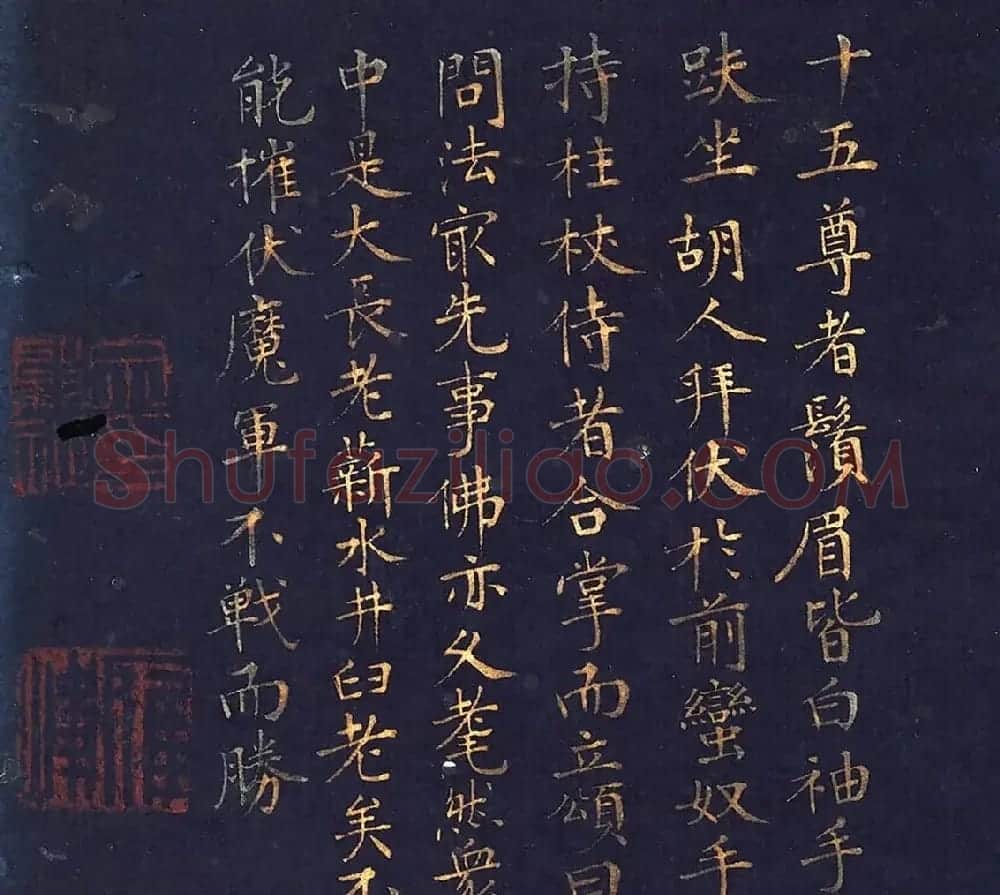 十五尊者鬚眉皆白袖手
趺坐胡人拜伏於前蠻奴手
持柱杖侍者合掌而立頌曰
問法㝡先事佛亦久耄然衆
中是大長老薪水井臼老矣不
能摧伏魔軍不戰而勝
Shufaziliao.COM